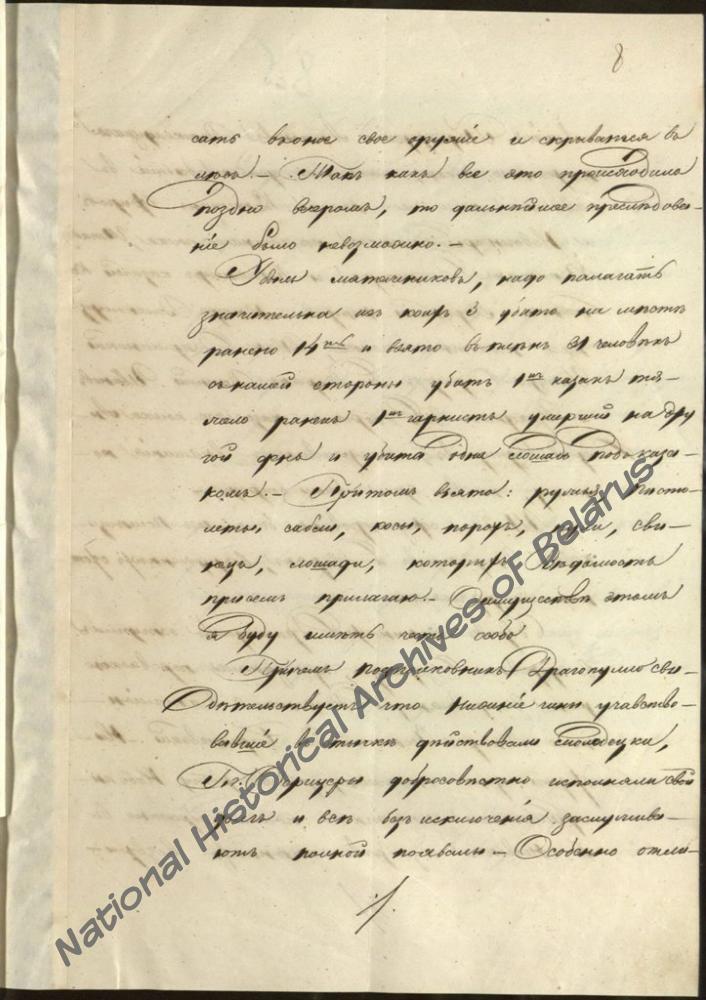 8
сать вконое свое оружіе и скрыватся въ
лѣсъ. – Такъ какъ все это происходило
поздно вечеромъ, то дальнѣйшое преслѣдова-
ніе было невозможно. –
Уронъ мятежниковъ, надо полагать
значительна изъ коихъ 3 убито на мѣстѣ
ранено 14ть и взято въ плѣнъ 31 человѣкъ
съ нашей стороны убитъ 1нъ казакъ тя-
жело раненъ 1нъ гарнистъ умершій на дру
гой день и убита одна лошадь подъ казա-
комъ. – Притомъ взято: ружья, писто-
леты, сабли, косы, порохъ, пули, сви-
нецъ, лошади, которымъ вѣдомость
присемъ прилагаю. – этомъ
я буду имѣть честь особо
Причемъ подполковникъ Драгопуло сви-
дѣтельствуетъ что нижніе чины учавство-
вавшіе в стычкѣ дѣйствовали молодецки,
Гг. Офицеры добросовѣстно исполняли свой
долгъ и всѣ безъ исключенія заслужива-
ютъ полной похвалы – Особенно отли-
National Historical Archives of Belarus